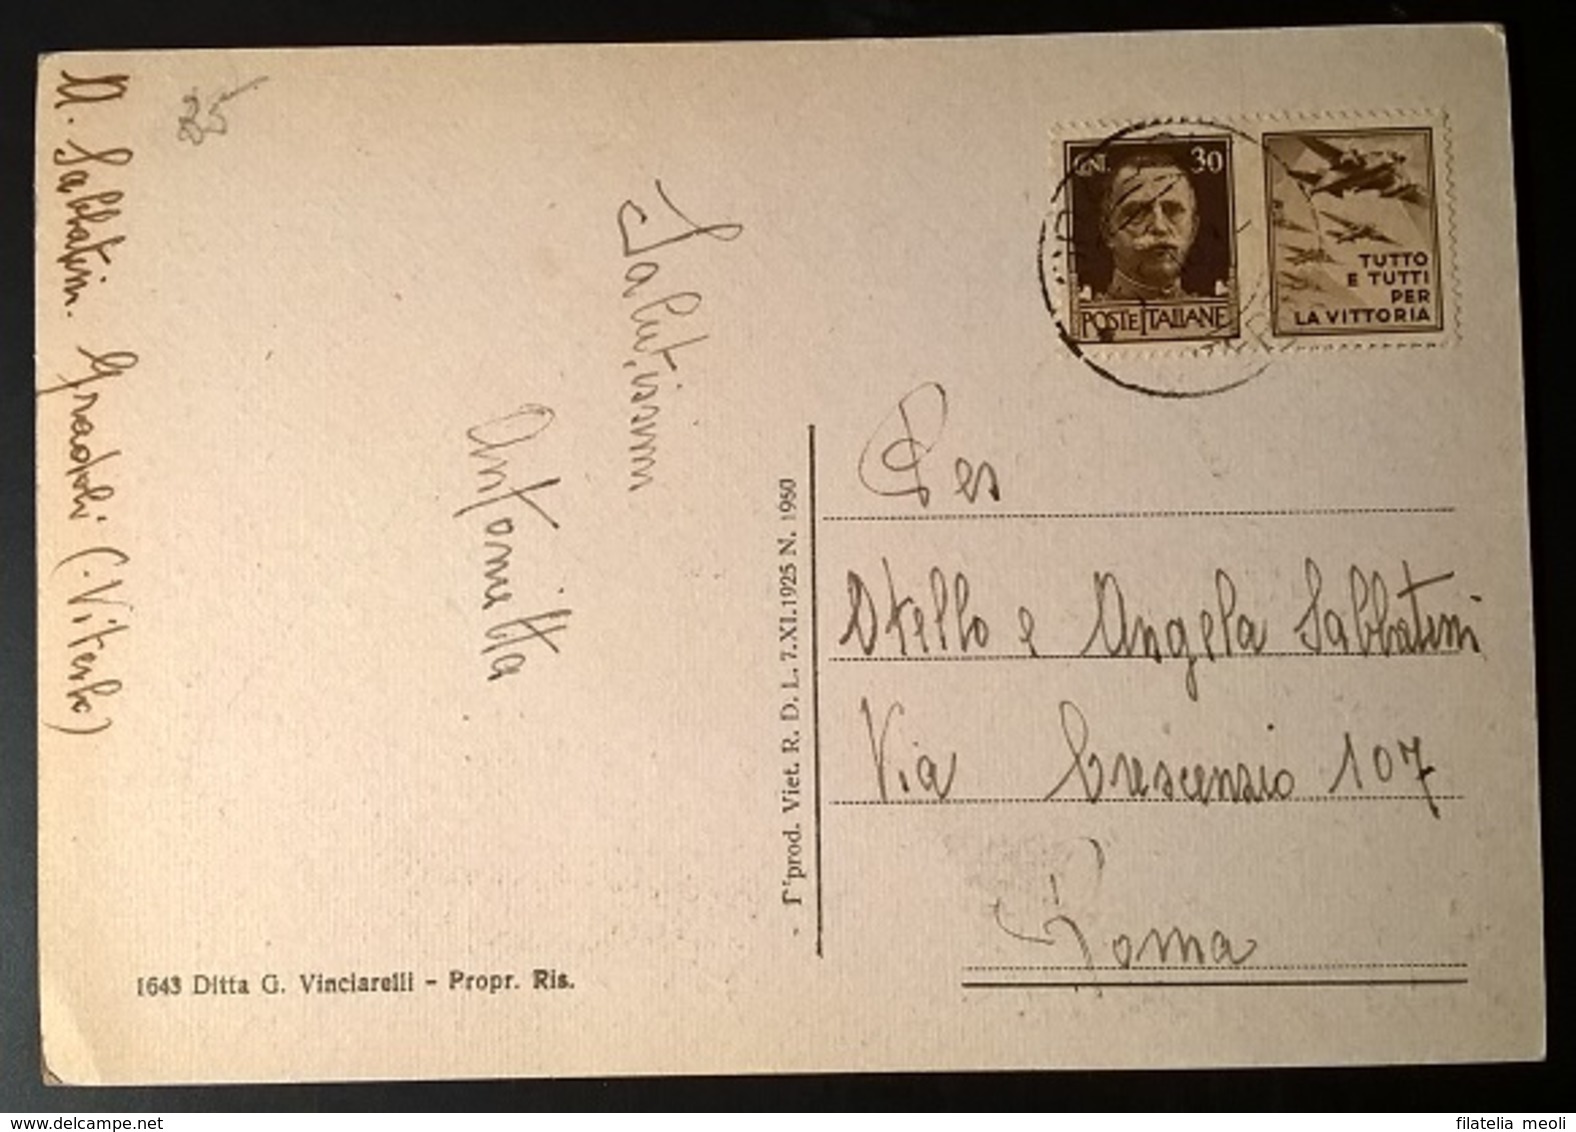 M. Sabbatini. Gradoli (Viterbo)
Salutissimi
Antonietta
CENT. 30
POSTE ITALIANE
TUTTO
E TUTTI
PER
LA VITTORIA
Per
Stello e Angela Sabbatini
Via Crescenzio 107
Roma
Riprod. Viet. R. D. L. 7.XI.1925 N. 1950
1643 Ditta G. Vinciarelli - Propr. Ris.
filatelia meoli